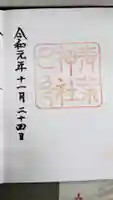 青
神社
令和元年十一月二十四日